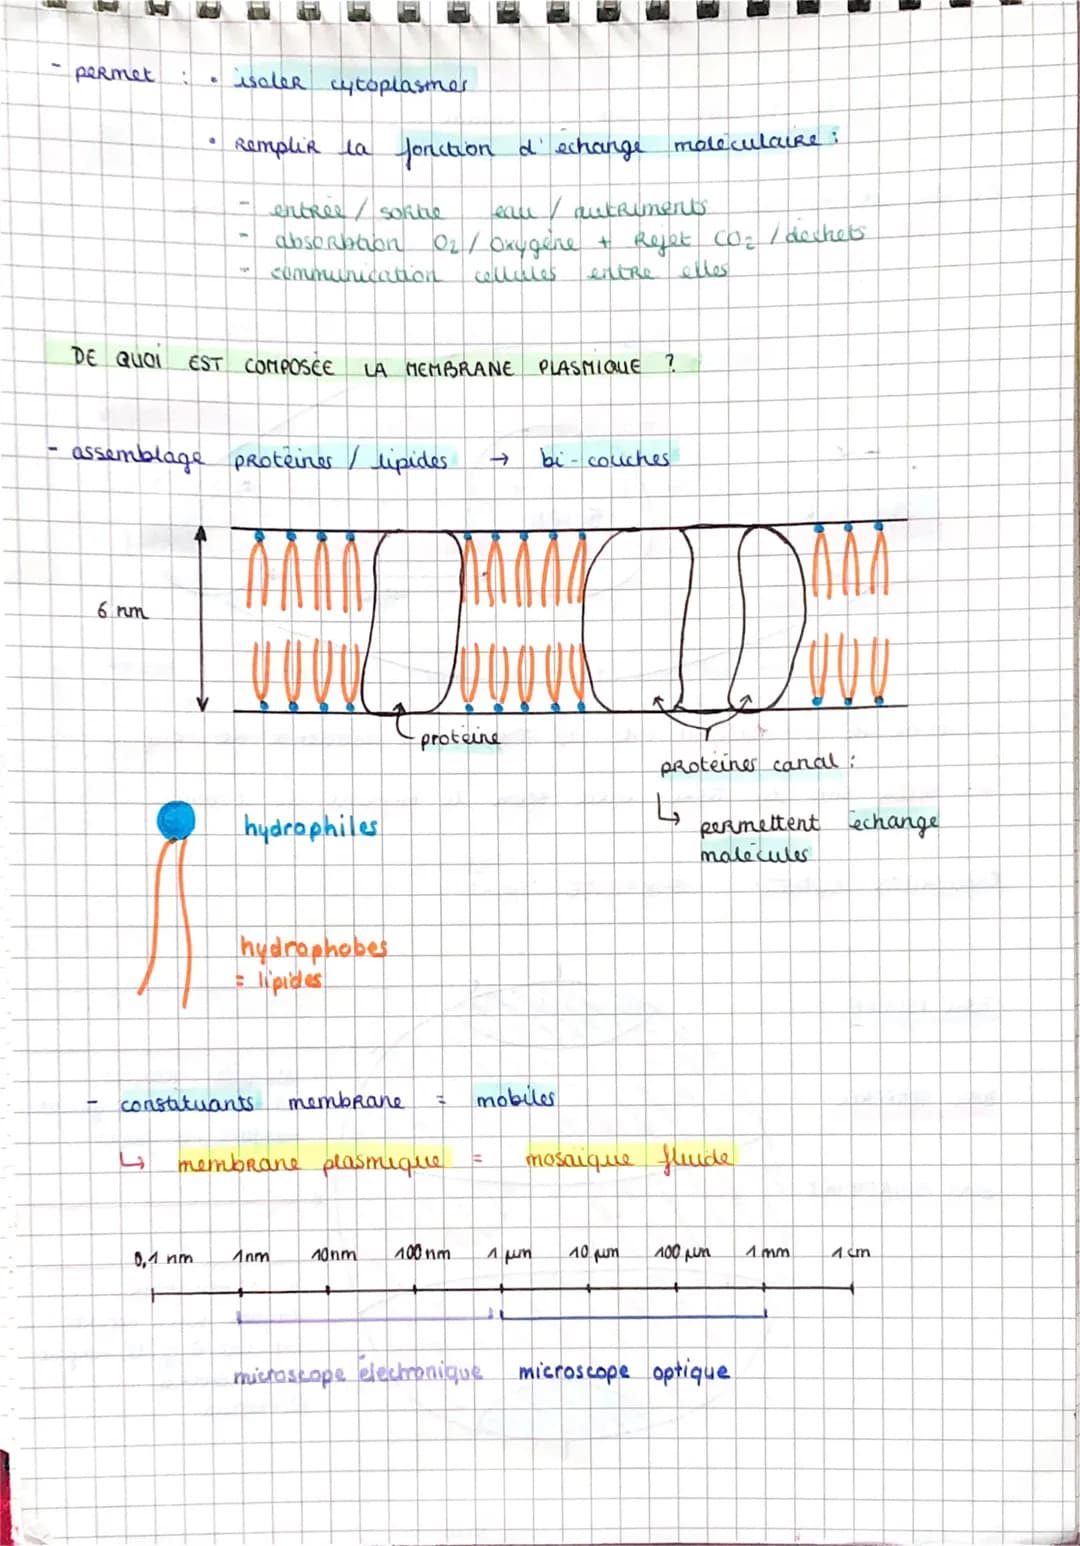 - permet : • isoler cytoplasmes
• Remplir la fonction d'échange moléculaire :
- entrée / sortie eau / nutriments
- absorbtion O2 / oxygène + Rejet CO2 / déchets
- communication cellules entre elles
DE QUOI EST COMPOSÉE LA MEMBRANE PLASMIQUE ?
- assemblage protéines / lipides → bi-couches
6 nm
protéine
protéines canal :
↳ permettent échange
molécules
hydrophiles
hydrophobes
= lipides
- constituants membrane = mobiles
↳ membrane plasmique = mosaique fluide
0,1 nm 1nm 10nm 100nm 1 µm 10 µm 100 µm 1 mm 1 cm
microscope électronique microscope optique